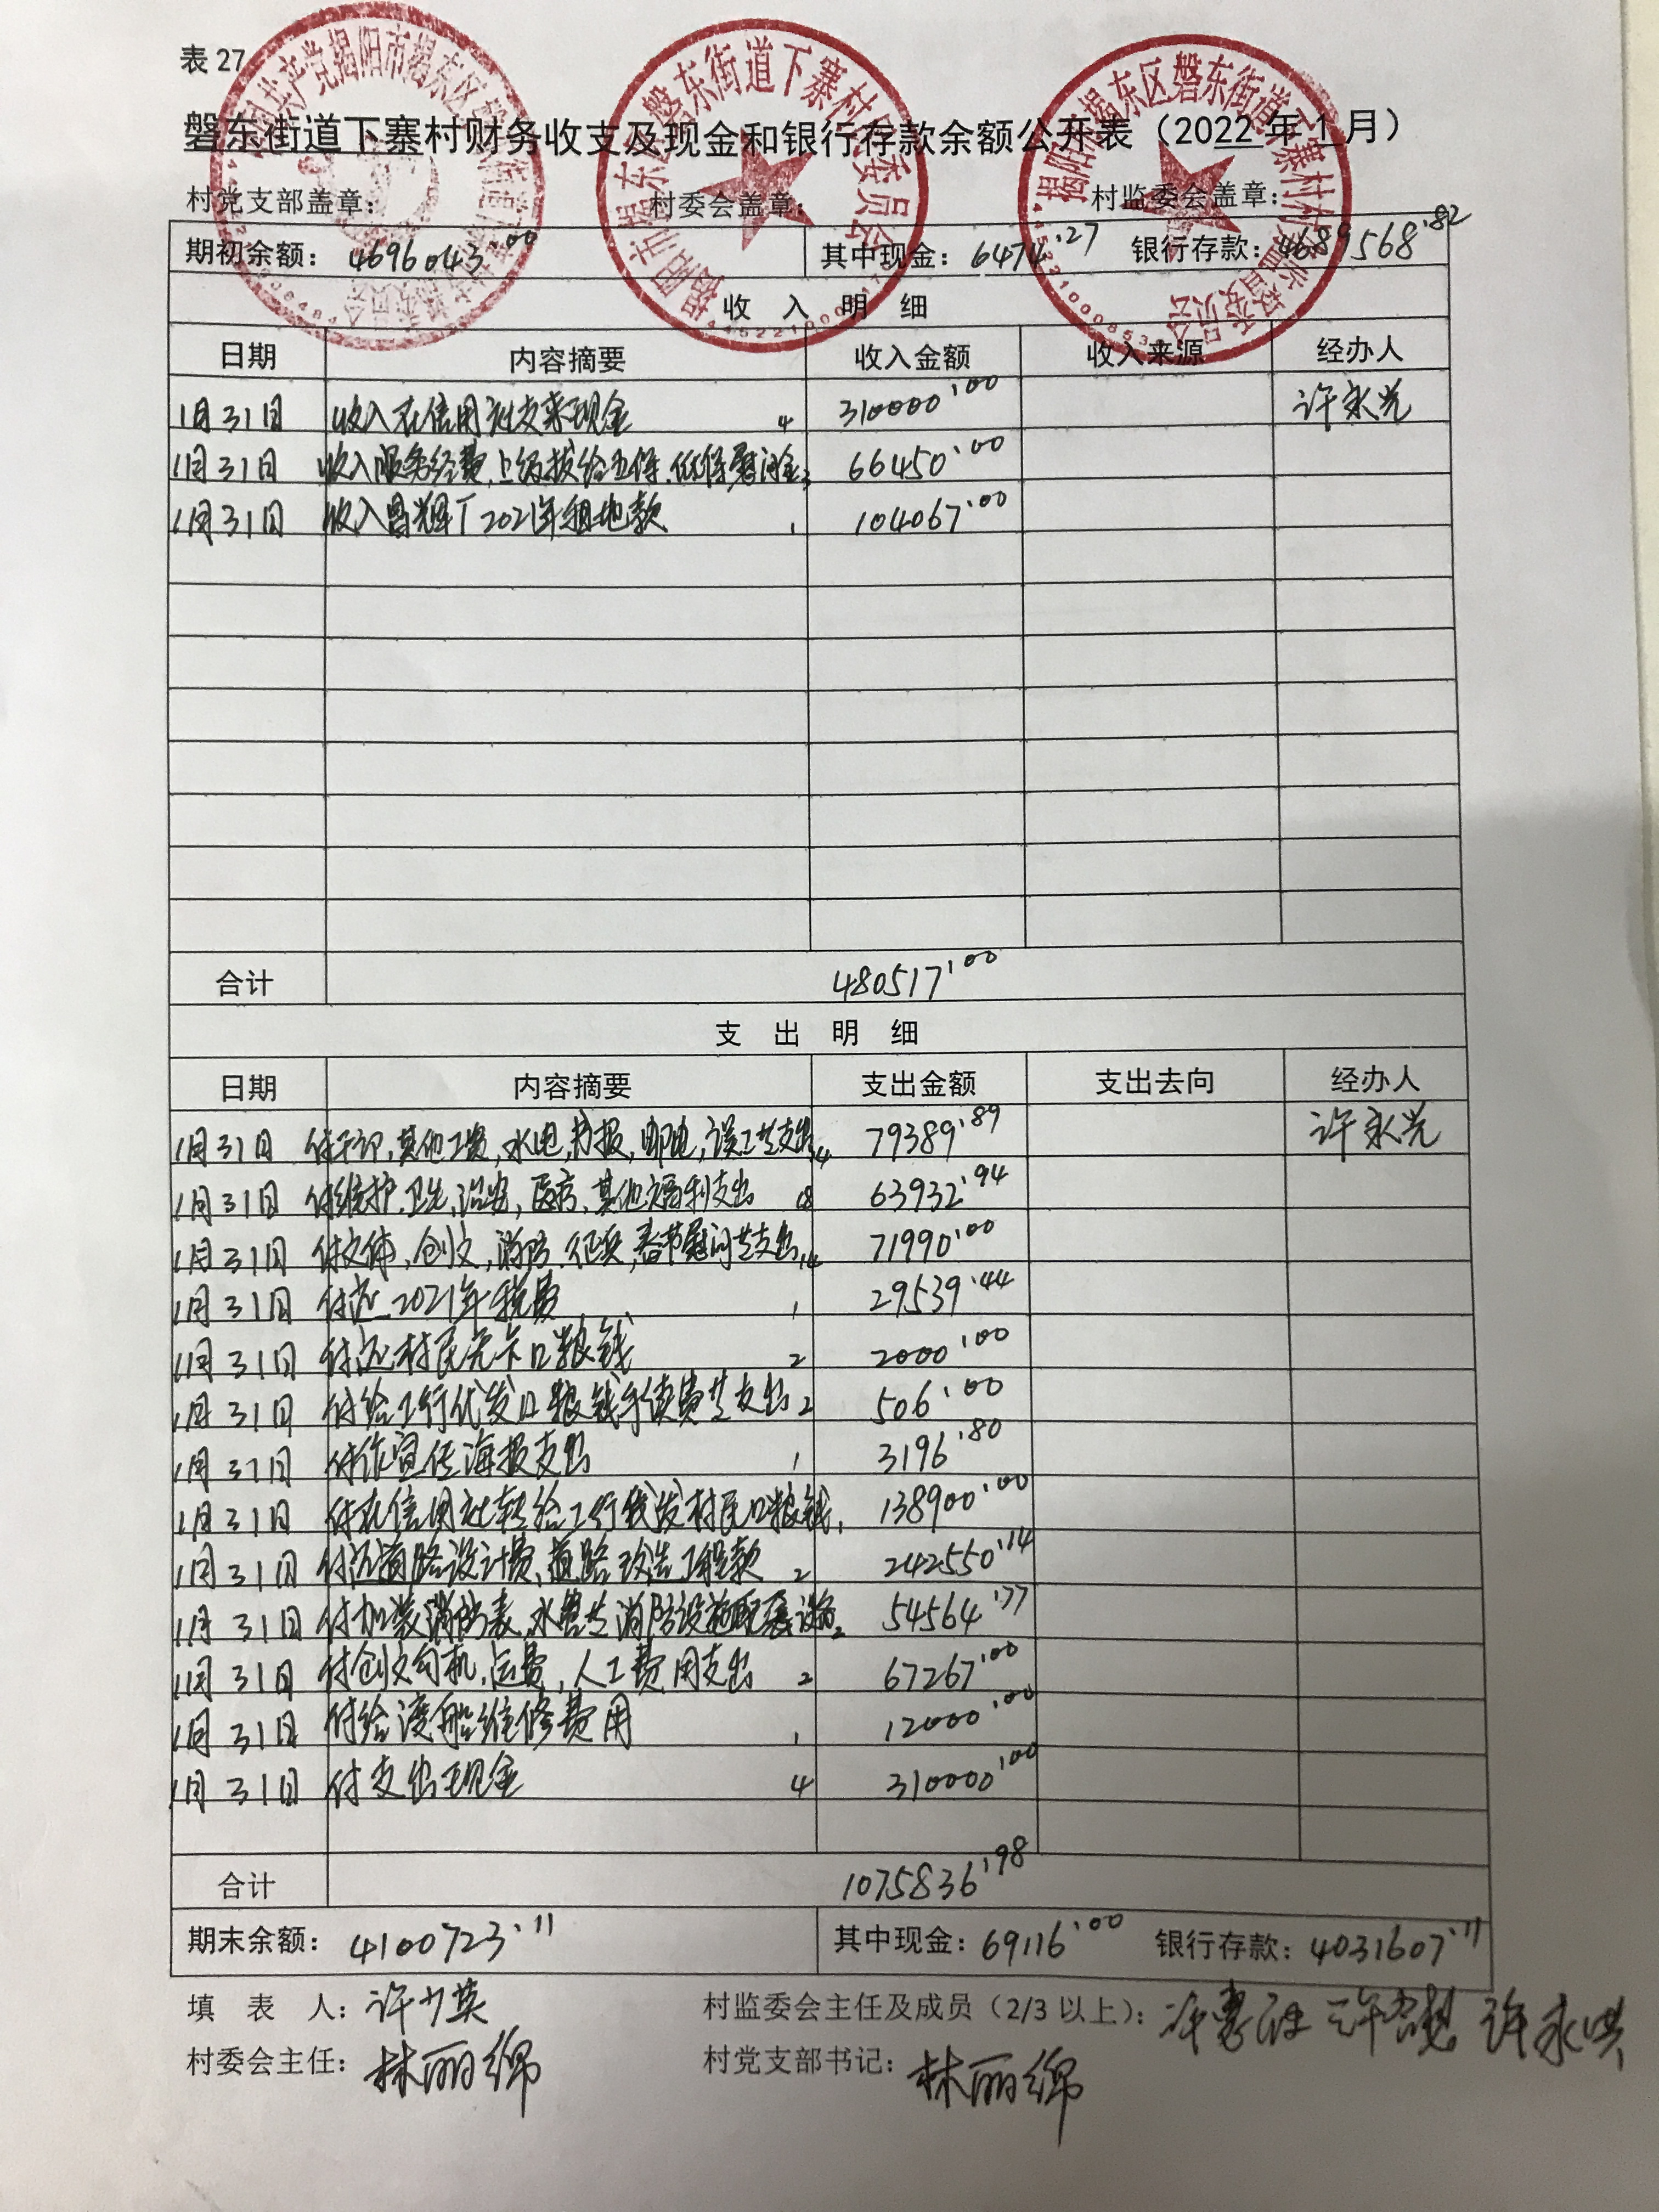 表 27
磐东街道下寨村财务收支及现金和银行存款余额公开表（2022 年 1 月）
村党支部盖章： 村委会盖章： 村监委会盖章：
期初余额： 4696043.00 其中现金：6474.27 银行存款：4689568.82
收 入 明 细
日期 内容摘要 收入金额 收入来源 经办人
1月31日 收入在信用社支来现金 4 310000.00 许永光
1月31日 收入服务经费、上级拨给五保、低保慰问金 3 66450.00
1月31日 收入昌辉厂2021年租地款 1 104067.00
合计 480517.00
支 出 明 细
日期 内容摘要 支出金额 支出去向 经办人
1月31日 付干部,其他工资,水电,书报,邮电,误工等支出 14 79389.89 许永光
1月31日 付维护,卫生,治安,医疗,其他福利支出 18 63932.94
1月31日 付文体,创文,消防,征兵,春节慰问等支出 14 71990.00
1月31日 付还2021年税费 1 29539.44
1月31日 付还村民无卡口粮钱 2 2000.00
1月31日 付给工行代发口粮钱手续费等支出 2 506.00
1月31日 付作宣传海报支出 1 3196.80
1月31日 付在信用社转给工行代发村民口粮钱 1 138900.00
1月31日 付还道路设计费、道路改造工程款 2 242550.14
1月31日 付加装消防表,水管等消防设施配套设备 2 54564.77
1月31日 付创文勾机,运费,人工费用支出 2 67267.00
1月31日 付给渡船维修费用 1 12000.00
1月31日 付支出现金 4 310000.00
合计 1075836.98
期末余额： 4100723.11 其中现金：69116.00 银行存款：4031607.11
填 表 人：许少英 村监委会主任及成员（2/3 以上）： 许永洪
村委会主任：林丽绵 村党支部书记：林丽绵